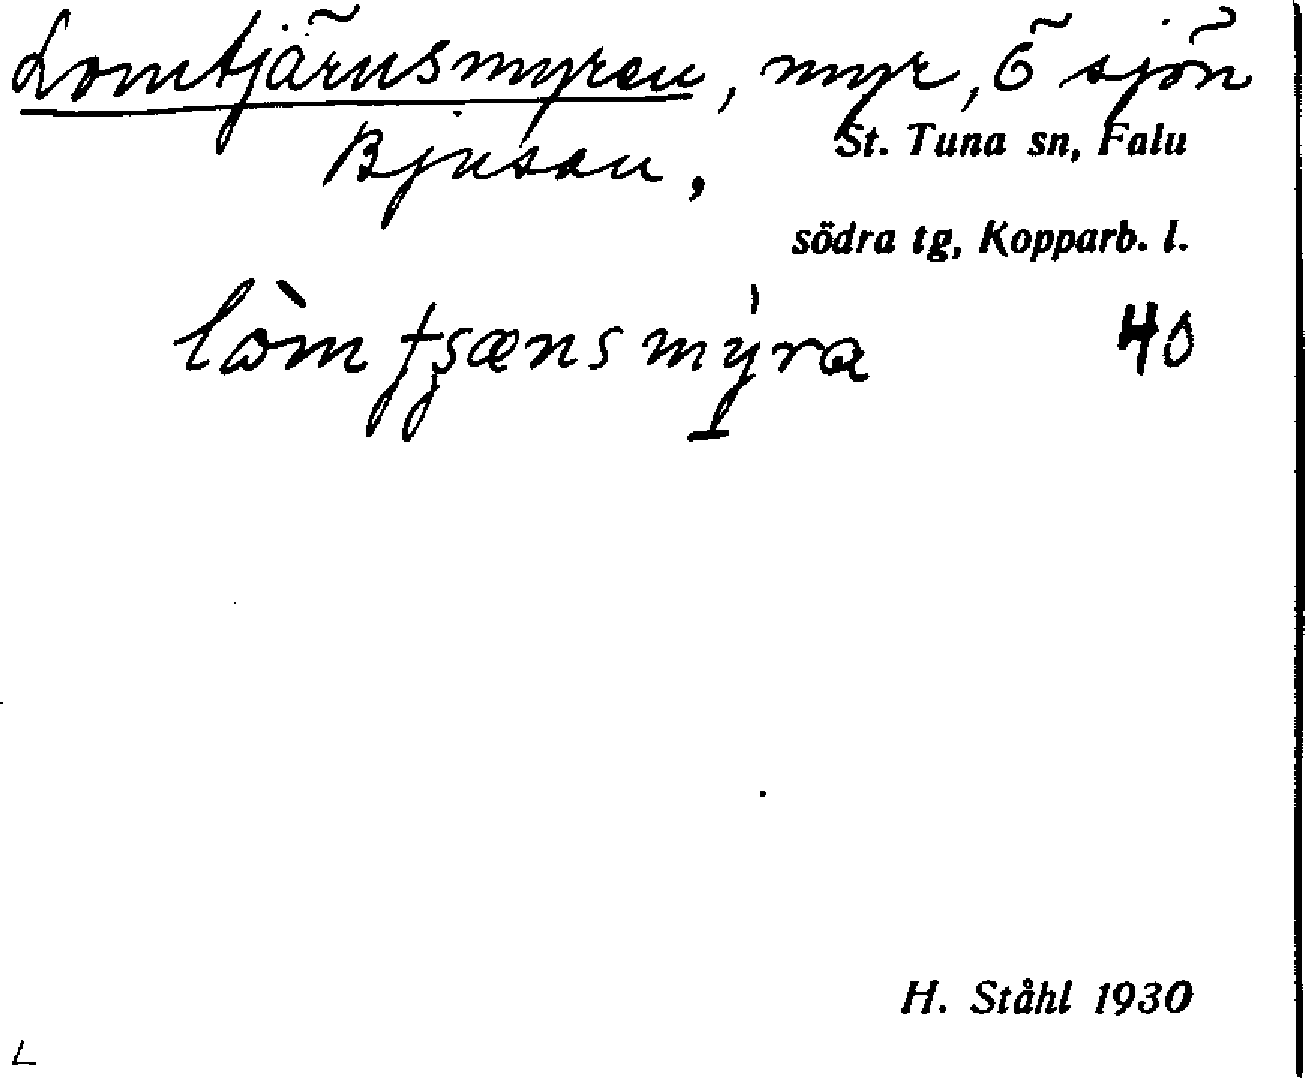 Lomtjärnsmyren, myr, Ö sjön
Bjusen,
St. Tuna sn, Falu
södra tg, Kopparb. l.
40
H. Ståhl 1930
L